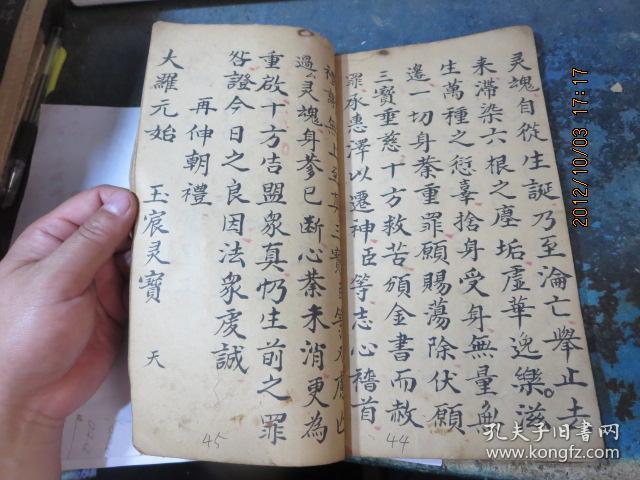 灵魂自從生誕乃至淪亡舉止
来滯染六根之塵垢虛華逸樂滋
生萬種之愆辜捨身受身無量無
邊一切身業重罪願賜蕩除伏願
三寳垂慈十方救苦頒金書而赦
罪承惠澤以遷神臣等志心稽首
44
無上
三寳
過灵魂身業已断心業未消更為
重啟十方告盟衆真忏生前之罪
咎證今日之良因法衆虔誠
再伸朝禮
大羅元始 玉宸灵寳 天
45
2012/10/03 17:17
孔夫子旧书网
www.kongfz.com